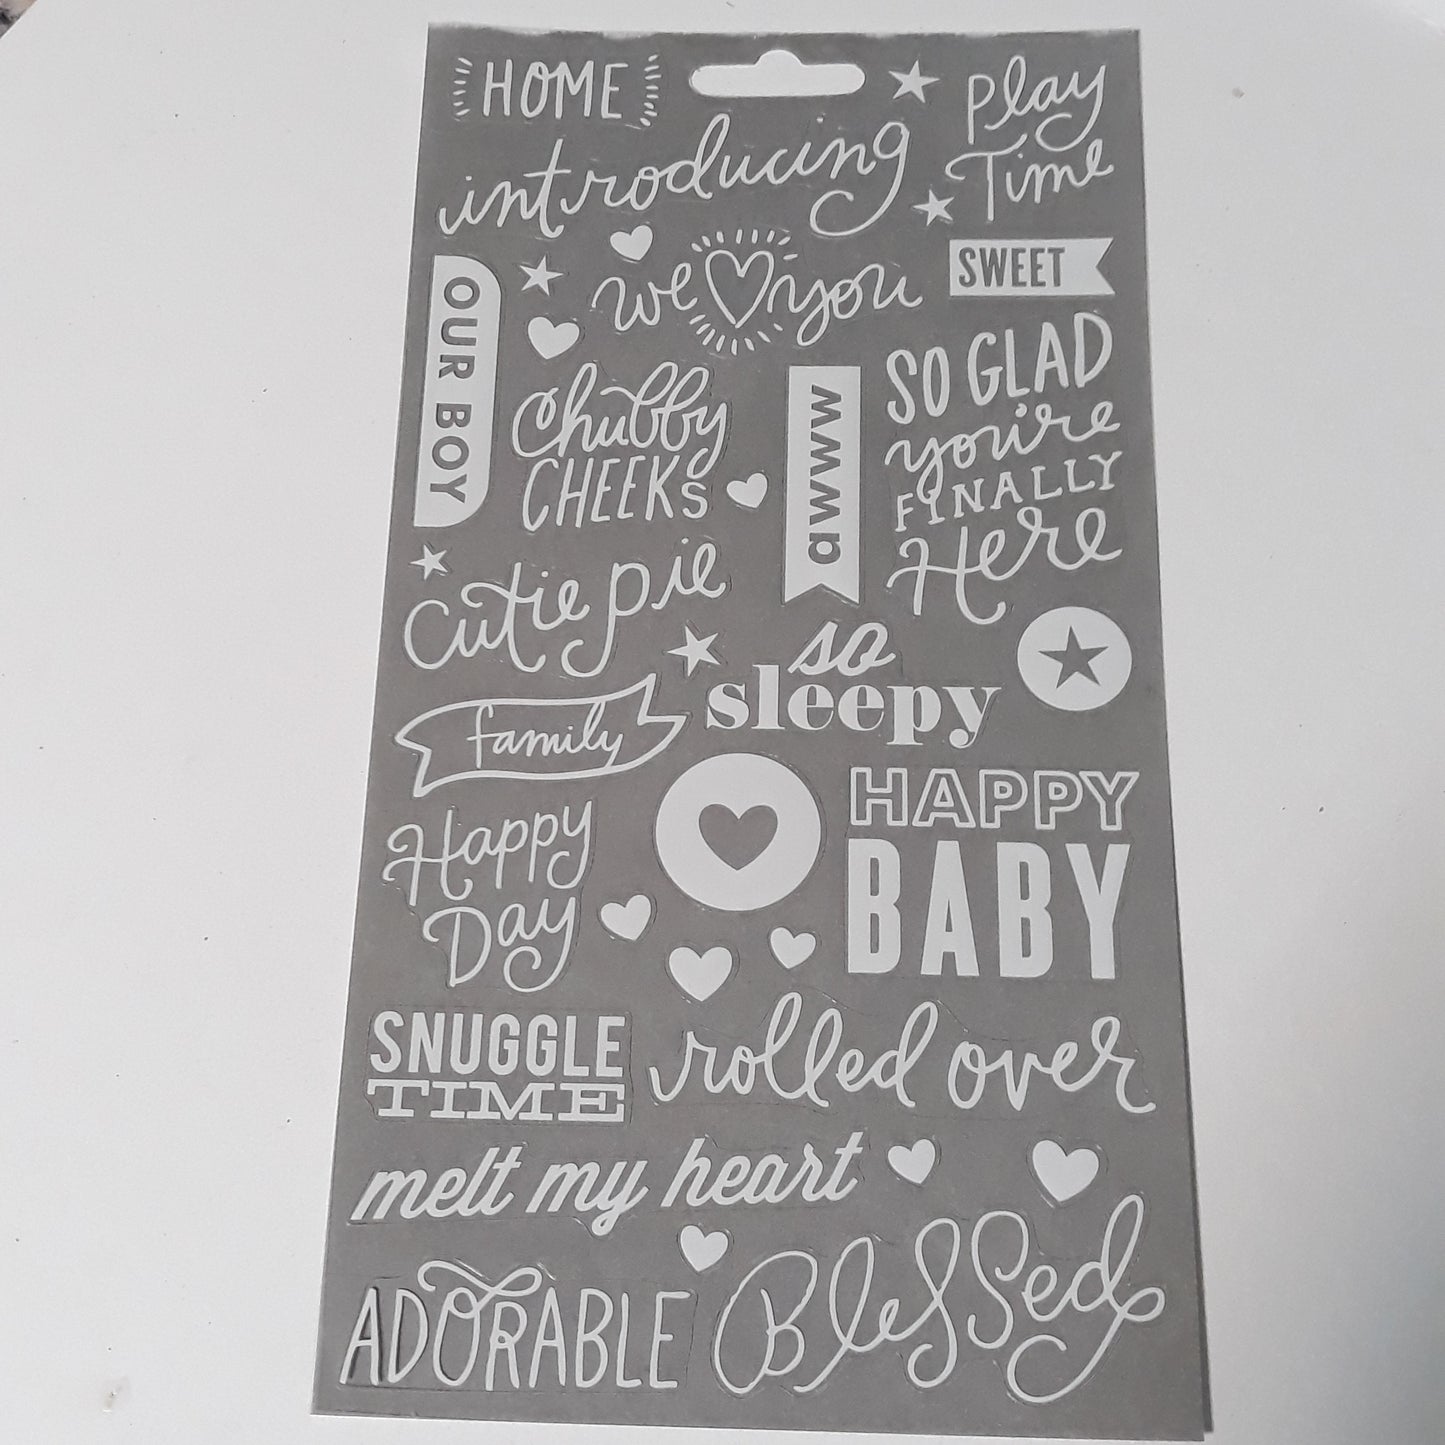 HOME
play
Time
introducing
we you
SWEET
OUR BOY
Chubby
CHEEKS
awww
SO GLAD
you're
FINALLY
Here
Cutie pie
so
sleepy
family
Happy
Day
HAPPY
BABY
SNUGGLE
TIME
rolled over
melt my heart
ADORABLE
Blessed